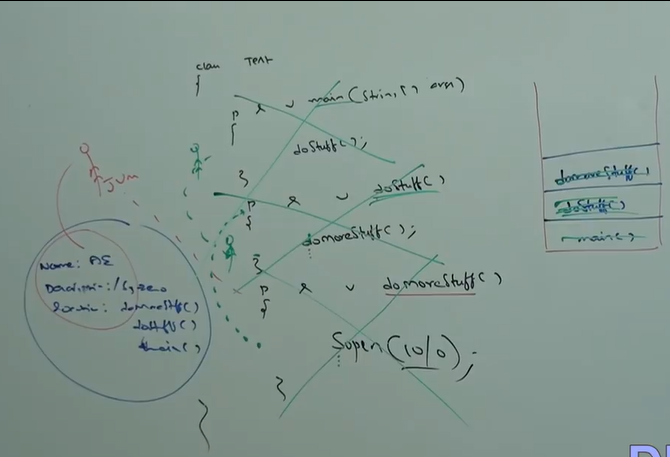 class Test
{
p s v main(String[] args)
{
doStuff();
}
p s v doStuff()
{
domoreStuff();
}
p s v domoreStuff()
{
Sopln(10/0);
}
}
JVM
Name: AE
Description: / by zero
Location: domoreStuff()
doStuff()
main()
domoreStuff()
doStuff()
main()